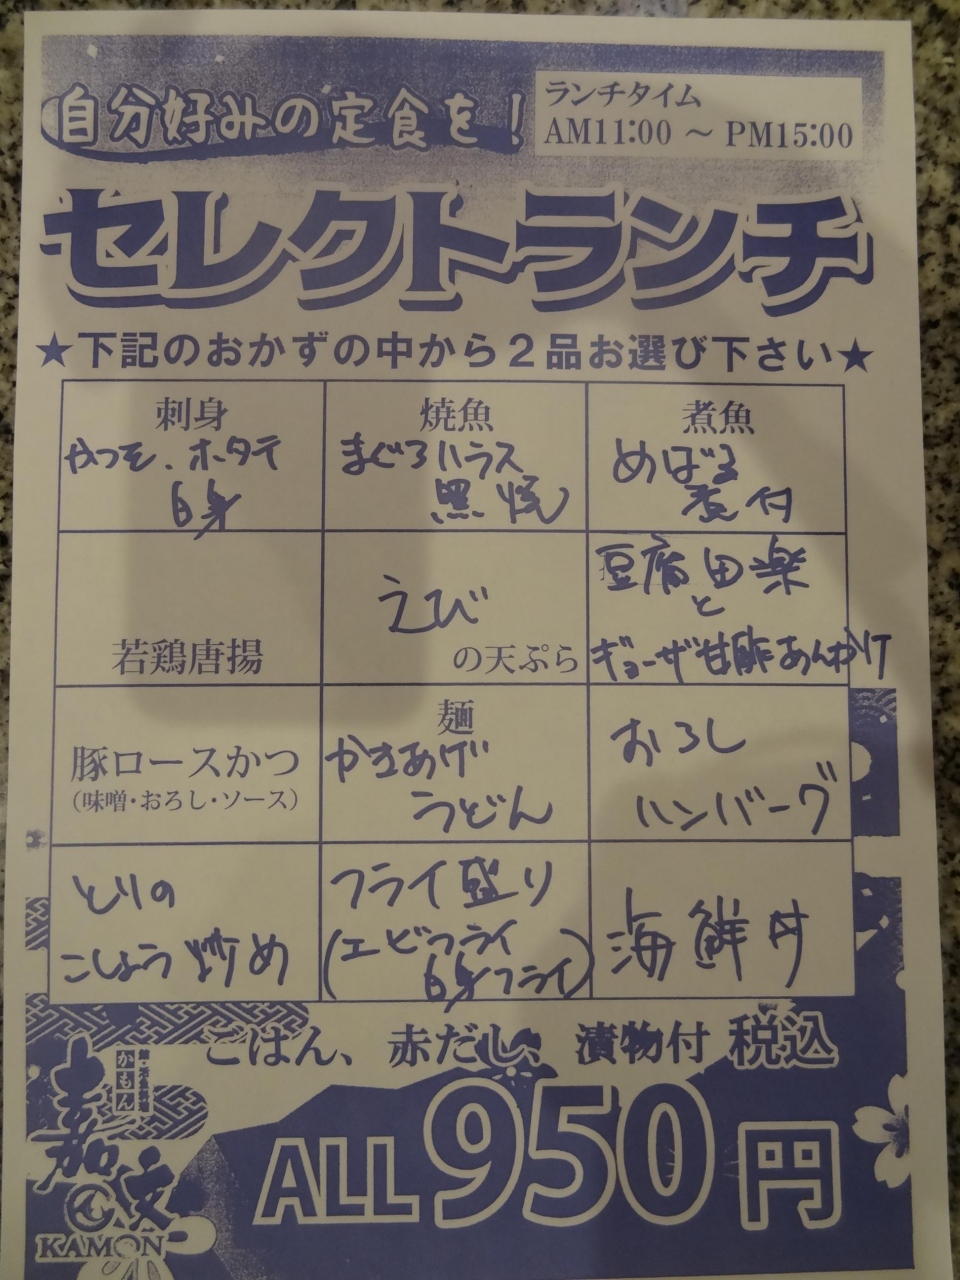 自分好みの定食を!
ランチタイム
AM11:00 ～ PM15:00
セレクトランチ
★下記のおかずの中から2品お選び下さい★
刺身
かつを、ホタテ
白身
焼魚
まぐろハラス
黒焼
煮魚
めばる
煮付
若鶏唐揚
えび
の天ぷら
豆腐田楽
と
ギョーザ甘酢あんかけ
豚ロースかつ
(味噌・おろし・ソース)
麺
かきあげ
うどん
おろし
ハンバーグ
とりの
こしょう炒め
フライ盛り
(エビフライ
白身フライ)
海鮮丼
ごはん、赤だし、漬物付 税込
ALL950円
かもん
嘉文
KAMON